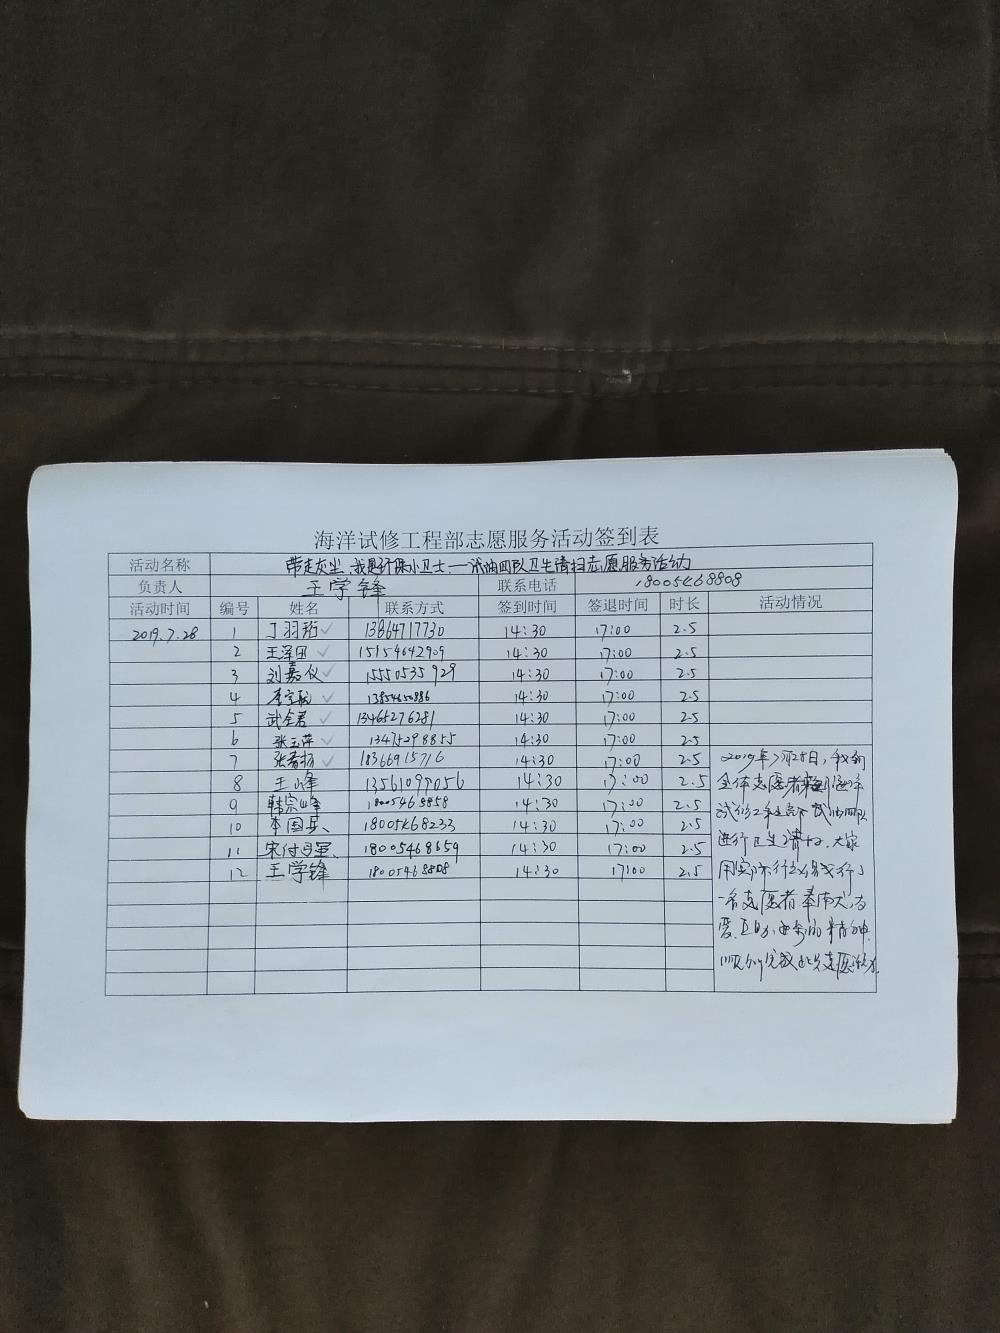 海洋试修工程部志愿服务活动签到表
活动名称 带走灰尘、我是环保小卫士——试油四队卫生清扫志愿服务活动
负责人 王学锋 联系电话 18005468808
活动时间 编号 姓名 联系方式 签到时间 签退时间 时长 活动情况
2019.7.28 1 丁羽珩 13864717730 14:30 17:00 2.5
2 王泽田 15154642909 14:30 17:00 2.5
3 刘嘉仪 15550535929 14:30 17:00 2.5
4 李宝聪 13854650886 14:30 17:00 2.5
5 武全君 13465276281 14:30 17:00 2.5
6 张玉萍 13475298855 14:30 17:00 2.5
7 张春扬 18366915716 14:30 17:00 2.5
8 王峰 13561097056 14:30 17:00 2.5
9 韩宗峰 18005465858 14:30 17:00 2.5
10 李国兵 18005468233 14:30 17:00 2.5
11 宋付 18005468659 14:30 17:00 2.5
12 王学锋 18005468808 14:30 17:00 2.5
2019年7月28日，我们
全体志愿者来到海洋
试修工程部试油四队
进行卫生清扫，大家
用实际行动践行了
一名志愿者奉献、友
爱、互助、进步的精神，
顺利完成此次志愿活动.